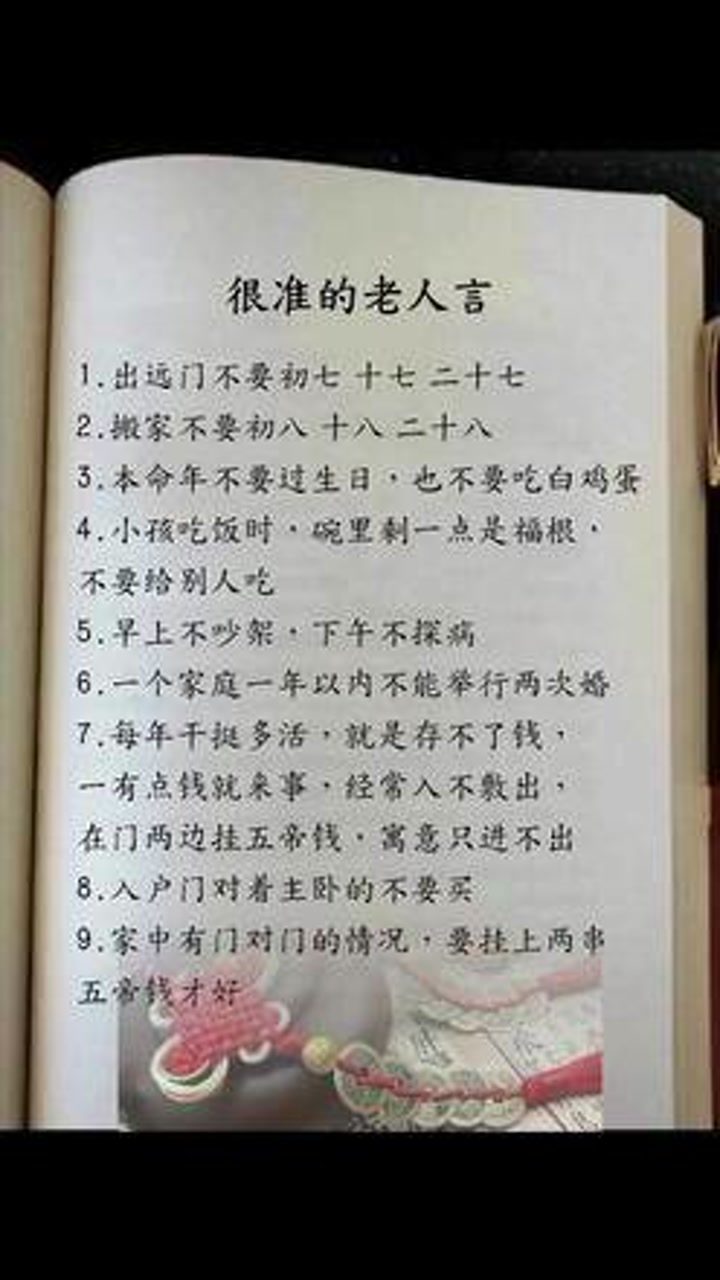 很准的老人言
1.出远门不要初七 十七 二十七
2.搬家不要初八 十八 二十八
3.本命年不要过生日，也不要吃白鸡蛋
4.小孩吃饭时，碗里剩一点是福根，
不要给别人吃
5.早上不吵架，下午不探病
6.一个家庭一年以内不能举行两次婚
7.每年干挺多活，就是存不了钱，
一有点钱就来事，经常入不敷出，
在门两边挂五帝钱，寓意只进不出
8.入户门对着主卧的不要买
9.家中有门对门的情况，要挂上两串
五帝钱才好